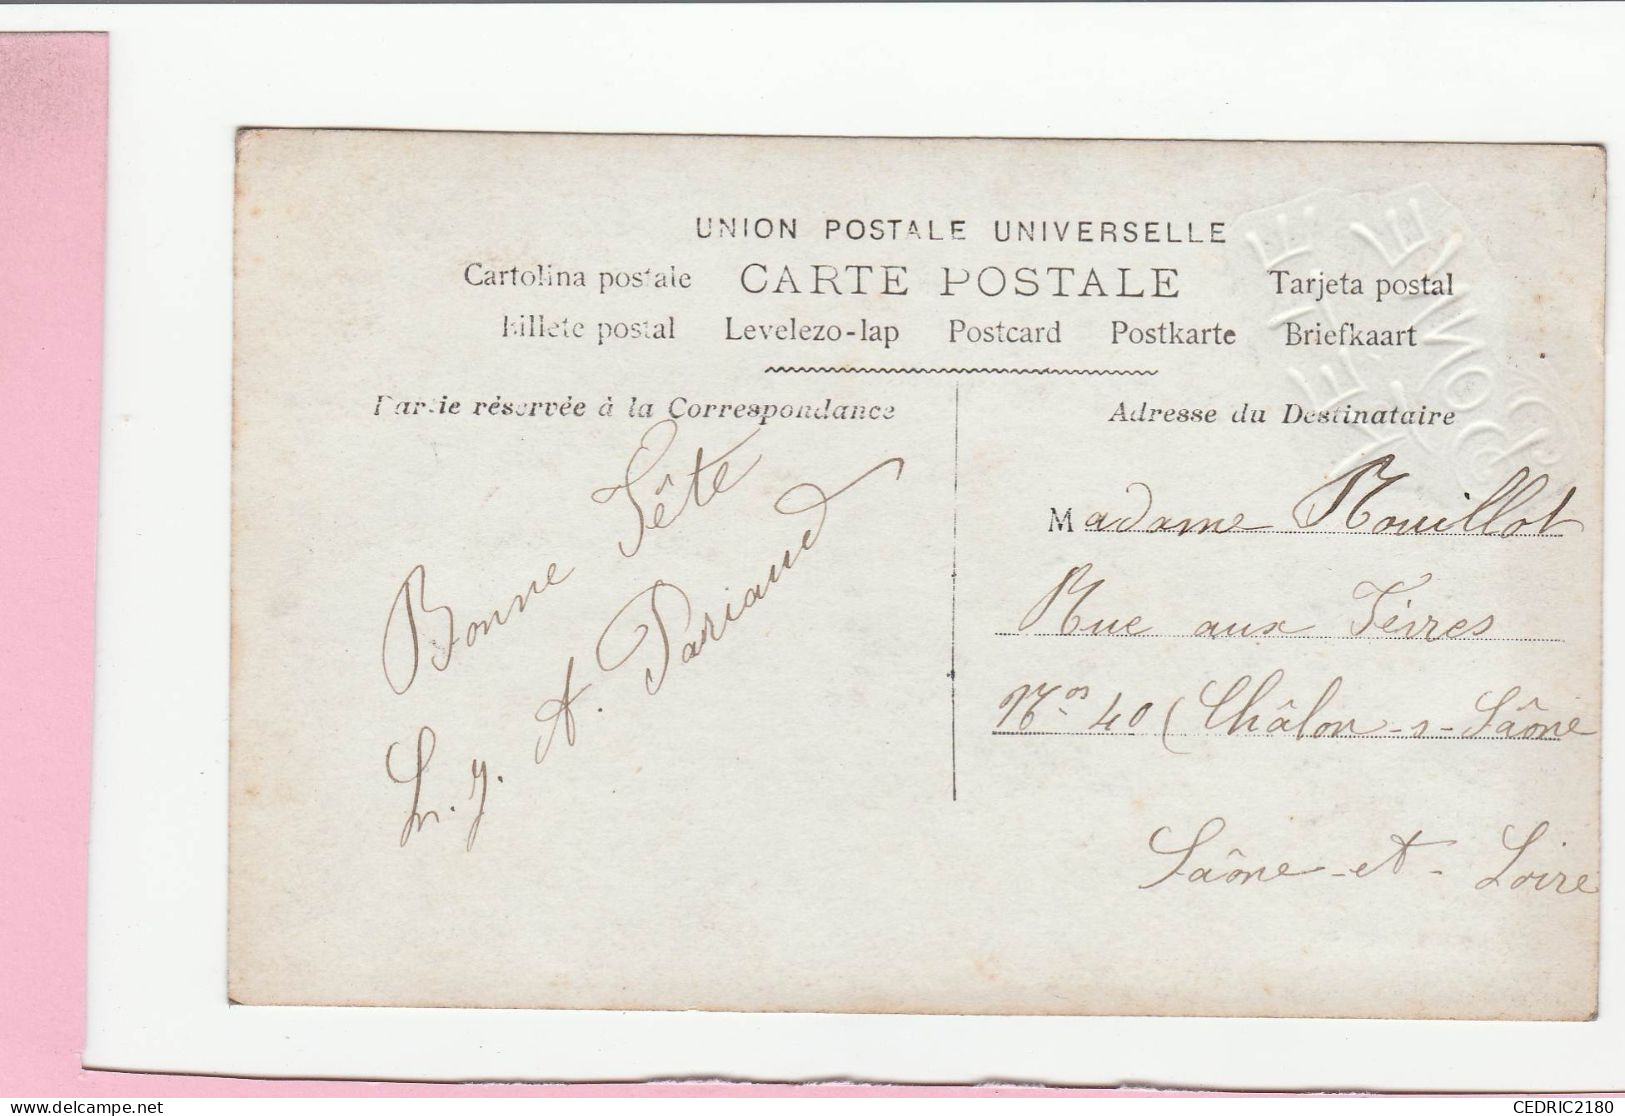 UNION POSTALE UNIVERSELLE
Cartolina postale CARTE POSTALE Tarjeta postal
Billete postal Levelezo-lap Postcard Postkarte Briefkaart
Partie réservée à la Correspondance
Adresse du Destinataire
Bonne Fête
L. J. A. Pariaud
Madame Rouillot
Rue aux Fèvres
Nos 40 Châlon-s-Saône
Saône-et-Loire
CEDRIC2180